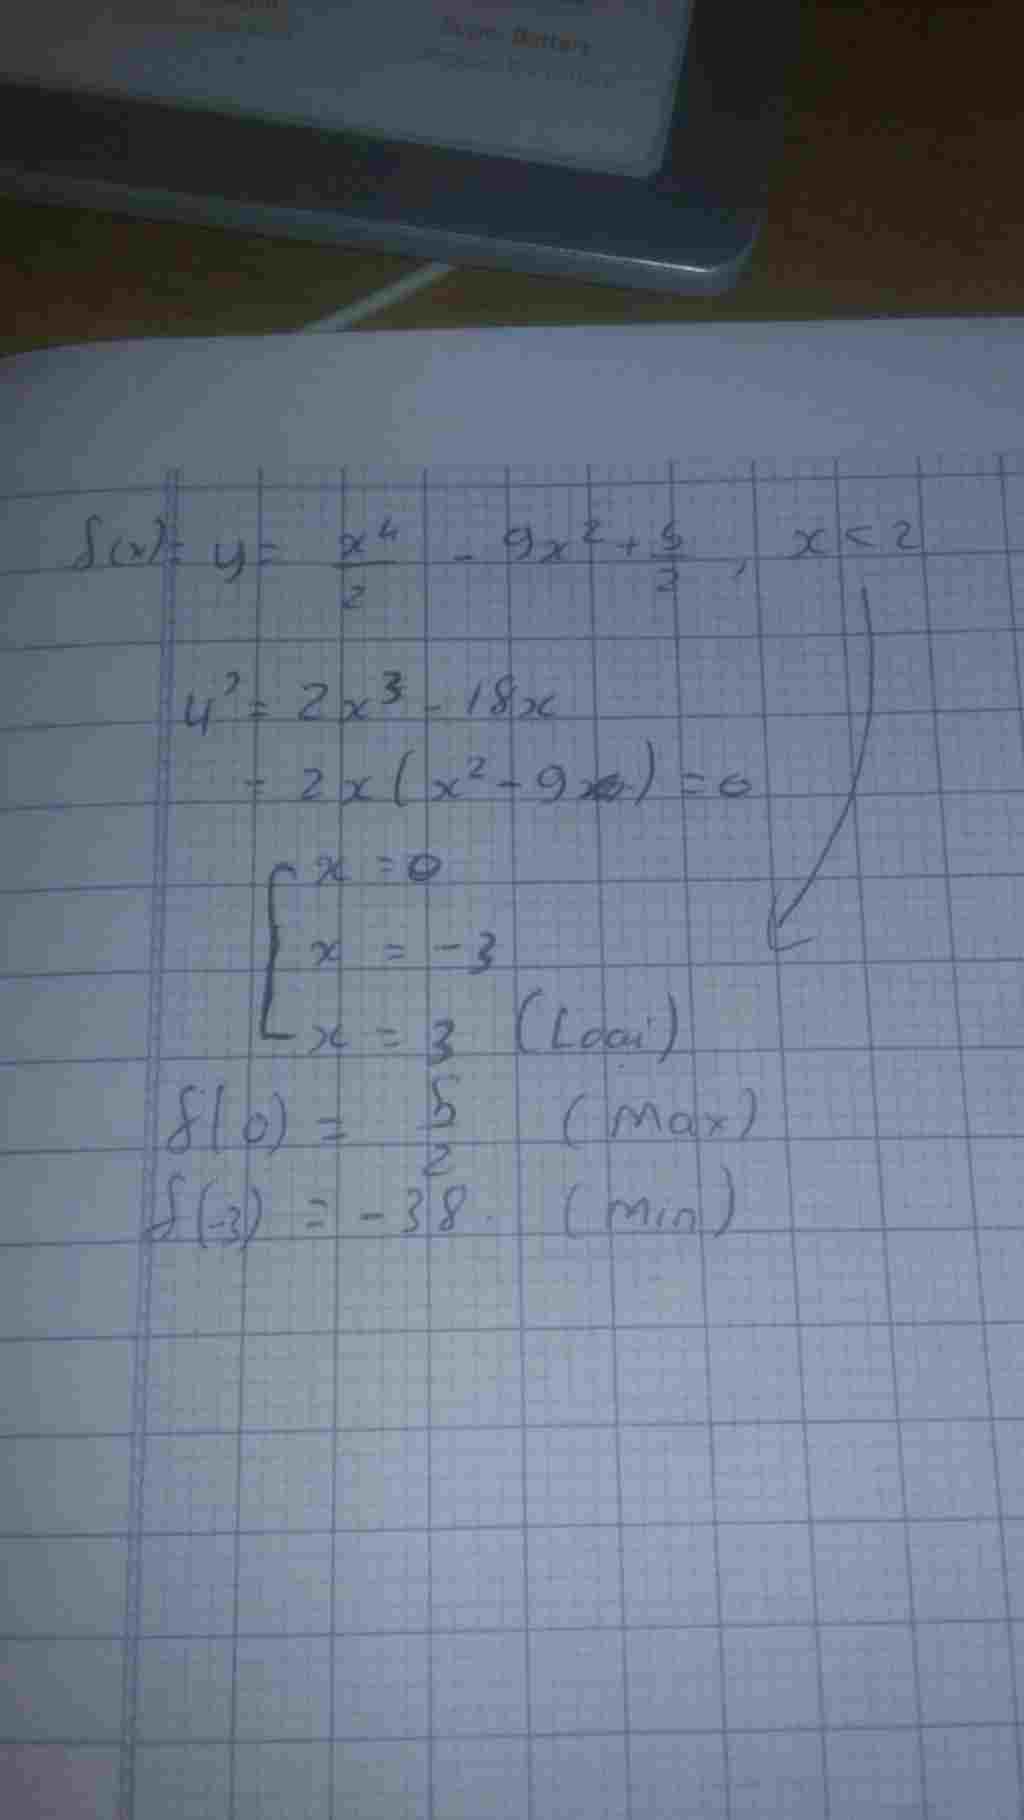 Super Battery
f(x) = y = x⁴/2 - 9x² + 5/2, x < 2
y' = 2x³ - 18x
= 2x(x² - 9) = 0
x = 0
x = -3
x = 3 (Loai)
f(0) = 5/2 (Max)
f(-3) = -38. (Min)